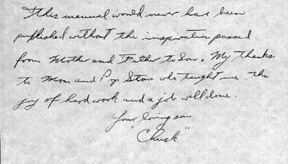 This manual would never have been
published without the inspiration passed
from Mother and Father to Son. My thanks
to Mom and Pop Stow who taught me the
joy of hard work and a job well done.
Your loving son
"Chuck"